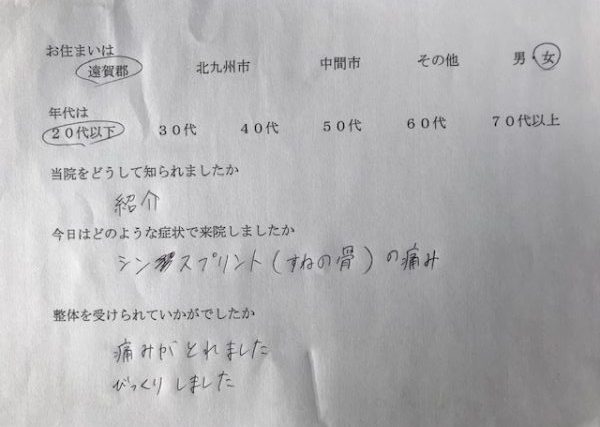 お住まいは
遠賀郡 北九州市 中間市 その他 男・女
年代は
20代以下 30代 40代 50代 60代 70代以上
当院をどうして知られましたか
紹介
今日はどのような症状で来院しましたか
シンスプリント(すねの骨)の痛み
整体を受けられていかがでしたか
痛みがとれました
びっくりしました